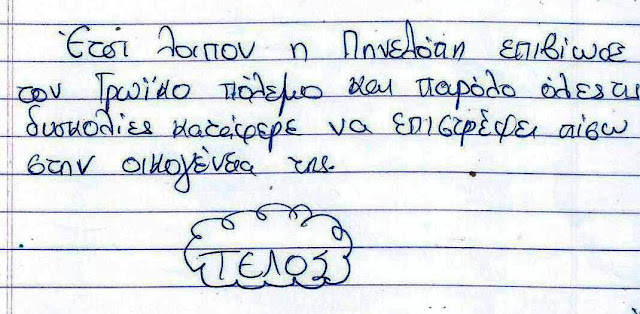 Έτσι λοιπον η Πηνελόπη επιβίωσε
τον Τρωϊκο πόλεμο και παρόλο όλες τις
δυσκολίες κατάφερε να επιστρέφει πίσω
στην οικογένεια της.
ΤΕΛΟΣ